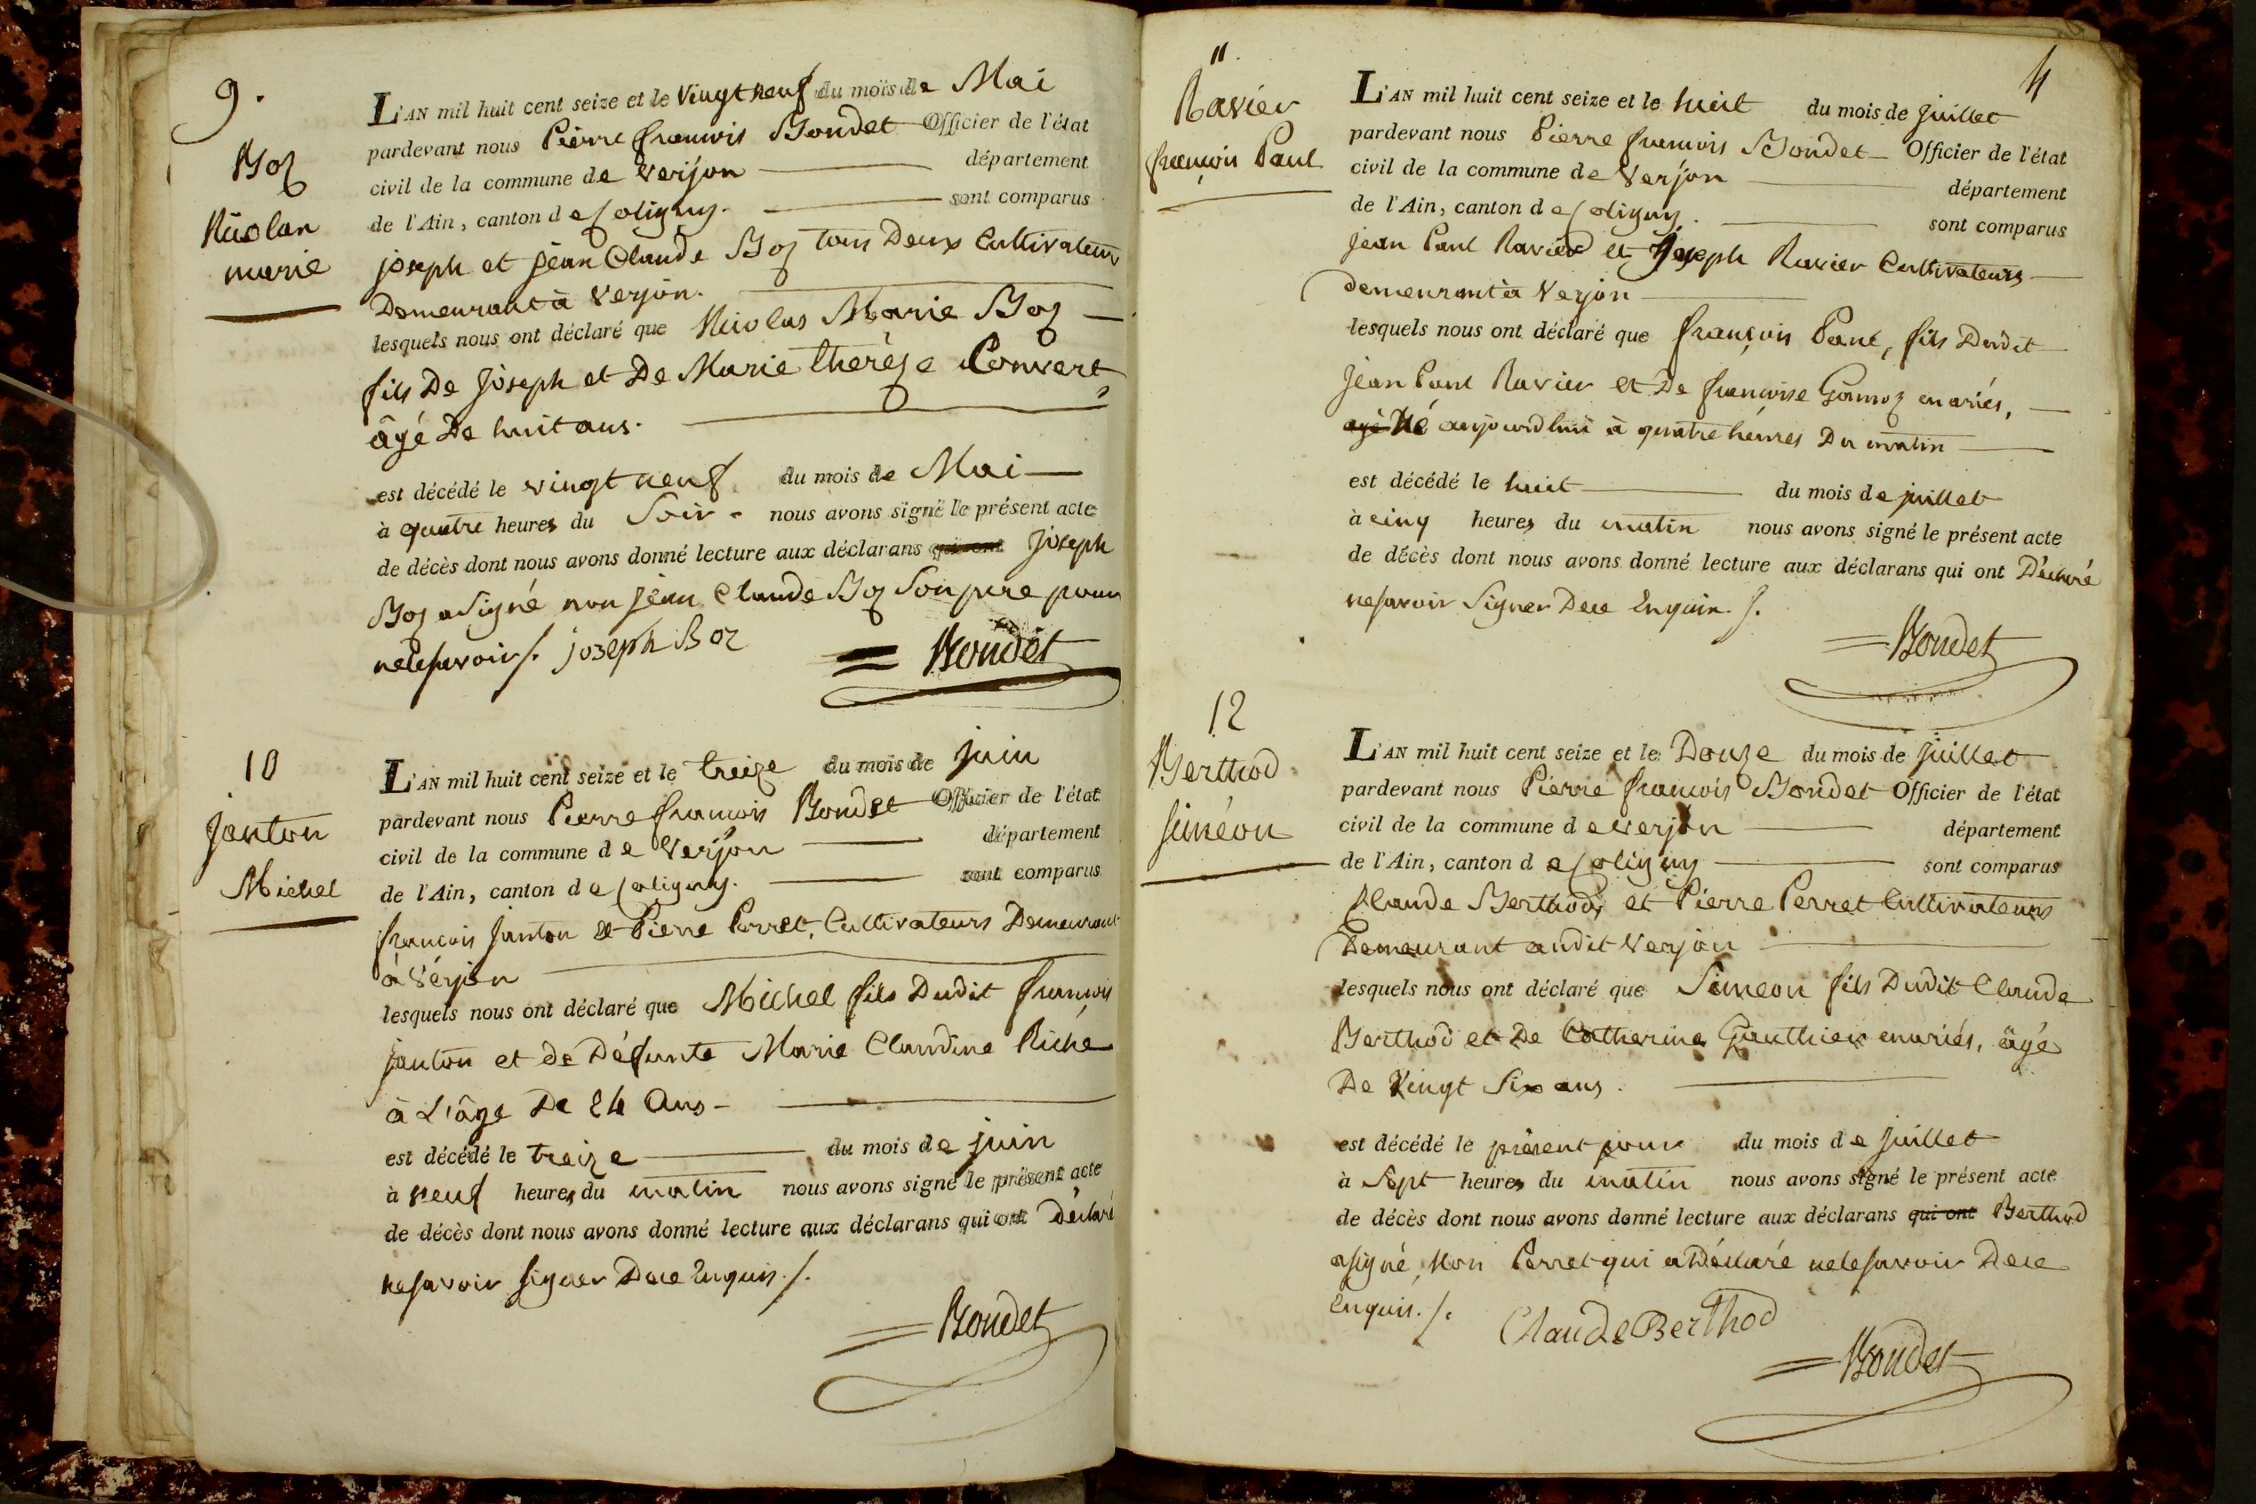 9.
Boz
Nicolas
marie
L'AN mil huit cent seize et le Vingt neuf du mois de Mai
pardevant nous Pierre françois Bondet Officier de l'état
civil de la commune de Verjon département
de l'Ain, canton de Coligny. sont comparus
joseph et jean Claude Boz tous Deux Cultivateurs
Demeurant à Verjon.
lesquels nous ont déclaré que Nicolas Marie Boz
fils De Joseph et De Marie therèze Convert,
âgé De huit ans.
est décédé le vingt neuf du mois de Mai
à quatre heures du Soir - nous avons signé le présent acte
de décès dont nous avons donné lecture aux déclarans qui ont Joseph
Boz a Signé non jean Claude Boz Son pere pour
ne le savoir /. joseph Boz
Bondet
10
janton
Michel
L'AN mil huit cent seize et le treize du mois de juin
pardevant nous Pierre françois Bondet Officier de l'état
civil de la commune de Verjon département
de l'Ain, canton de Coligny. sont comparus
françois janton et Pierre Perret, Cultivateurs Demeurant
à Verjon
lesquels nous ont déclaré que Michel fils Dudit françois
janton et de Défunte Marie Claudine Riché
à L'âge De 24 Ans -
est décédé le treize du mois de juin
à neuf heures du matin nous avons signé le présent acte
de décès dont nous avons donné lecture aux déclarans qui ont Déclaré
ne savoir signer De ce Enquis ./.
Bondet
4
11.
Ravier
françois Paul
L'AN mil huit cent seize et le huit du mois de juillet
pardevant nous Pierre françois Bondet Officier de l'état
civil de la commune de Verjon département
de l'Ain, canton de Coligny. sont comparus
jean Paul Ravier et Joseph Ravier Cultivateurs
demeurant à Verjon
lesquels nous ont déclaré que françois Paul, fils Dudit
jean Paul Ravier et De françoise mariés,
agé Né aujourdhui à quatre heures Du matin
est décédé le huit du mois de juillet
à cinq heures du matin nous avons signé le présent acte
de décès dont nous avons donné lecture aux déclarans qui ont Déclaré
ne savoir Signer De ce Enquis ./.
Bondet
12
Berthod
Siméon
L'AN mil huit cent seize et le Douze du mois de juillet
pardevant nous Pierre françois Bondet Officier de l'état
civil de la commune de Verjon département
de l'Ain, canton de Coligny sont comparus
Claude Berthod et Pierre Perret Cultivateurs
Demeurant audit Verjon
lesquels nous ont déclaré que Simeon fils Dudit Claude
Berthod et De Catherine Gauthier mariés, âgé
De Vingt Six ans.
est décédé le présent jour du mois de juillet
à Sept heures du matin nous avons signé le présent acte
de décès dont nous avons donné lecture aux déclarans qui ont Berthod
a signé, Non Perret qui a Déclaré ne le savoir De ce
Enquis ./. Claude Berthod
Bondet